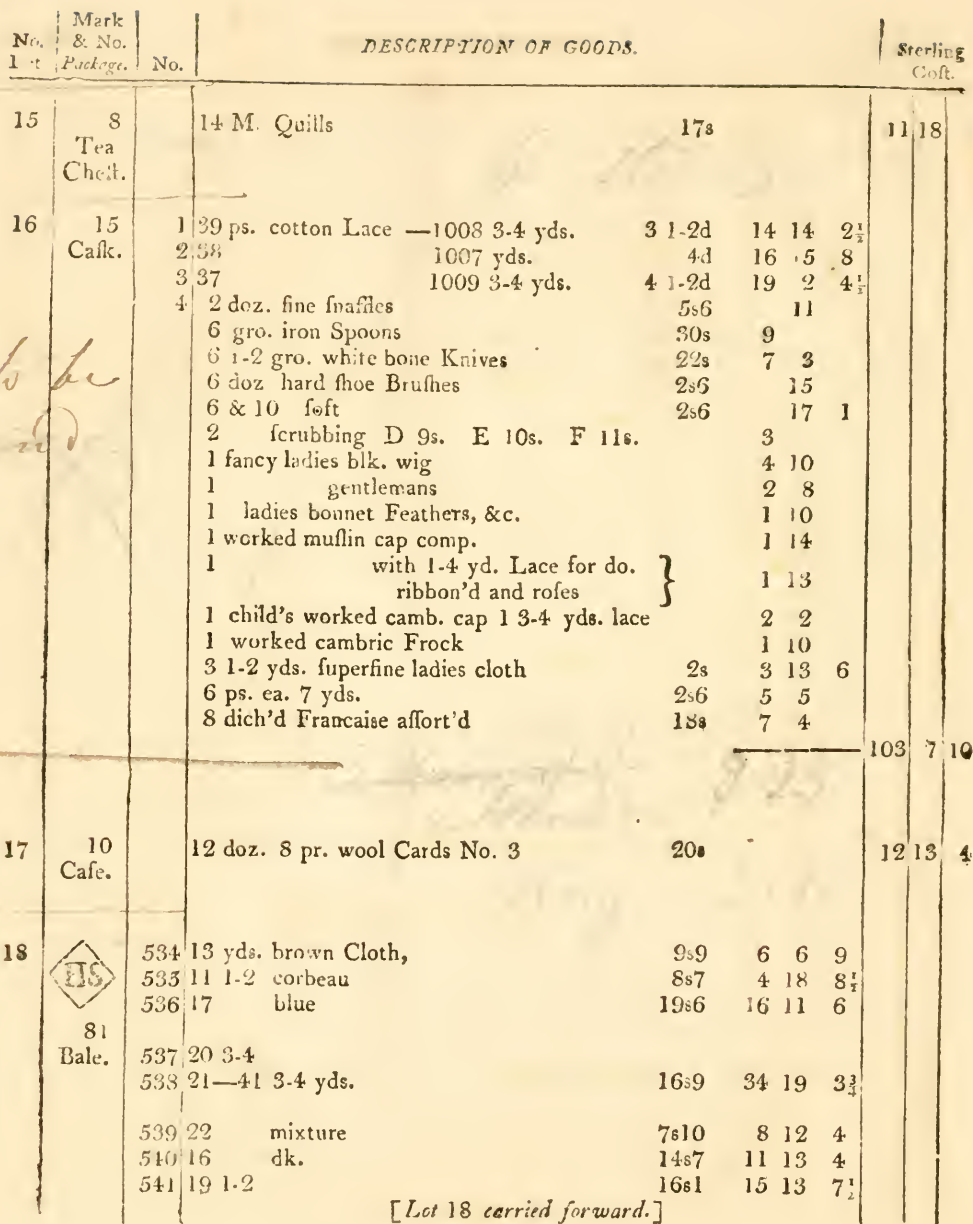 No. Mark & No. No. DESCRIPTION OF GOODS. Sterling
Package. Coſt.
15 8 14 M. Quills 17s 11 18
Tea
Cheſt.
16 15 1 39 ps. cotton Lace —1008 3-4 yds. 3 1-2d 14 14 2½
Caſk. 2 38 1007 yds. 4d 16 5 8
3 37 1009 3-4 yds. 4 1-2d 19 2 4½
4 2 doz. fine ſnaffles 5s6 11
6 gro. iron Spoons 30s 9
6 1-2 gro. white bone Knives 22s 7 3
to be
6 doz hard ſhoe Bruſhes 2s6 15
6 & 10 ſoft 2s6 17 1
2 ſcrubbing D 9s. E 10s. F 11s. 3
1 fancy ladies blk. wig 4 10
1 gentlemans 2 8
1 ladies bonnet Feathers, &c. 1 10
1 worked muſlin cap comp. 1 14
1 with 1-4 yd. Lace for do. } 1 13
ribbon'd and roſes
1 child's worked camb. cap 1 3-4 yds. lace 2 2
1 worked cambric Frock 1 10
3 1-2 yds. ſuperfine ladies cloth 2s 3 13 6
6 ps. ea. 7 yds. 2s6 5 5
8 dich'd Francaise aſſort'd 18s 7 4
103 7 10
17 10 12 doz. 8 pr. wool Cards No. 3 20s 12 13 4
Caſe.
18 534 13 yds. brown Cloth, 9s9 6 6 9
IIS 535 11 1-2 corbeau 8s7 4 18 8½
536 17 blue 19s6 16 11 6
81
Bale. 537 20 3-4
538 21—41 3-4 yds. 16s9 34 19 3¾
539 22 mixture 7s10 8 12 4
540 16 dk. 14s7 11 13 4
541 19 1-2 16s1 15 13 7½
[Lot 18 carried forward.]